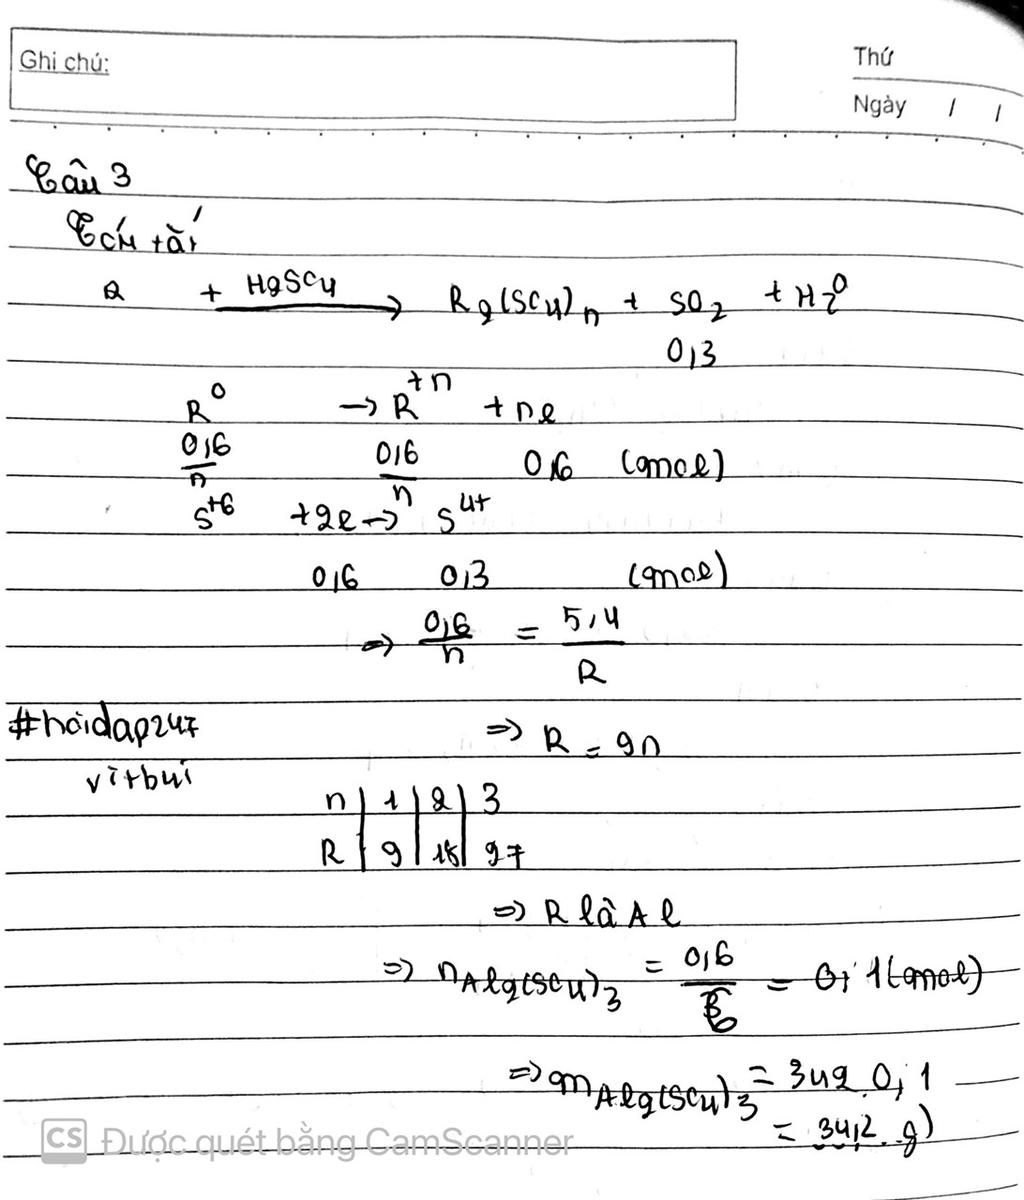 Ghi chú:
Thứ
Ngày / /
Câu 3
Tóm tắt
R + H2SO4 → R2(SO4)n + SO2 + H2O
0,3
R^0 → R^+n + ne
0,6/n 0,6/n 0,6 (mol)
S^+6 + 2e → S^4+
0,6 0,3 (mol)
⇒ 0,6/n = 5,4/R
#hoidap247
vitbui
⇒ R = 9n
n | 1 | 2 | 3
R | 9 | 18 | 27
⇒ R là Al
⇒ nAl2(SO4)3 = 0,6/6 = 0,1 (mol)
⇒ mAl2(SO4)3 = 342.0,1
= 34,2 g)
CS Được quét bằng CamScanner